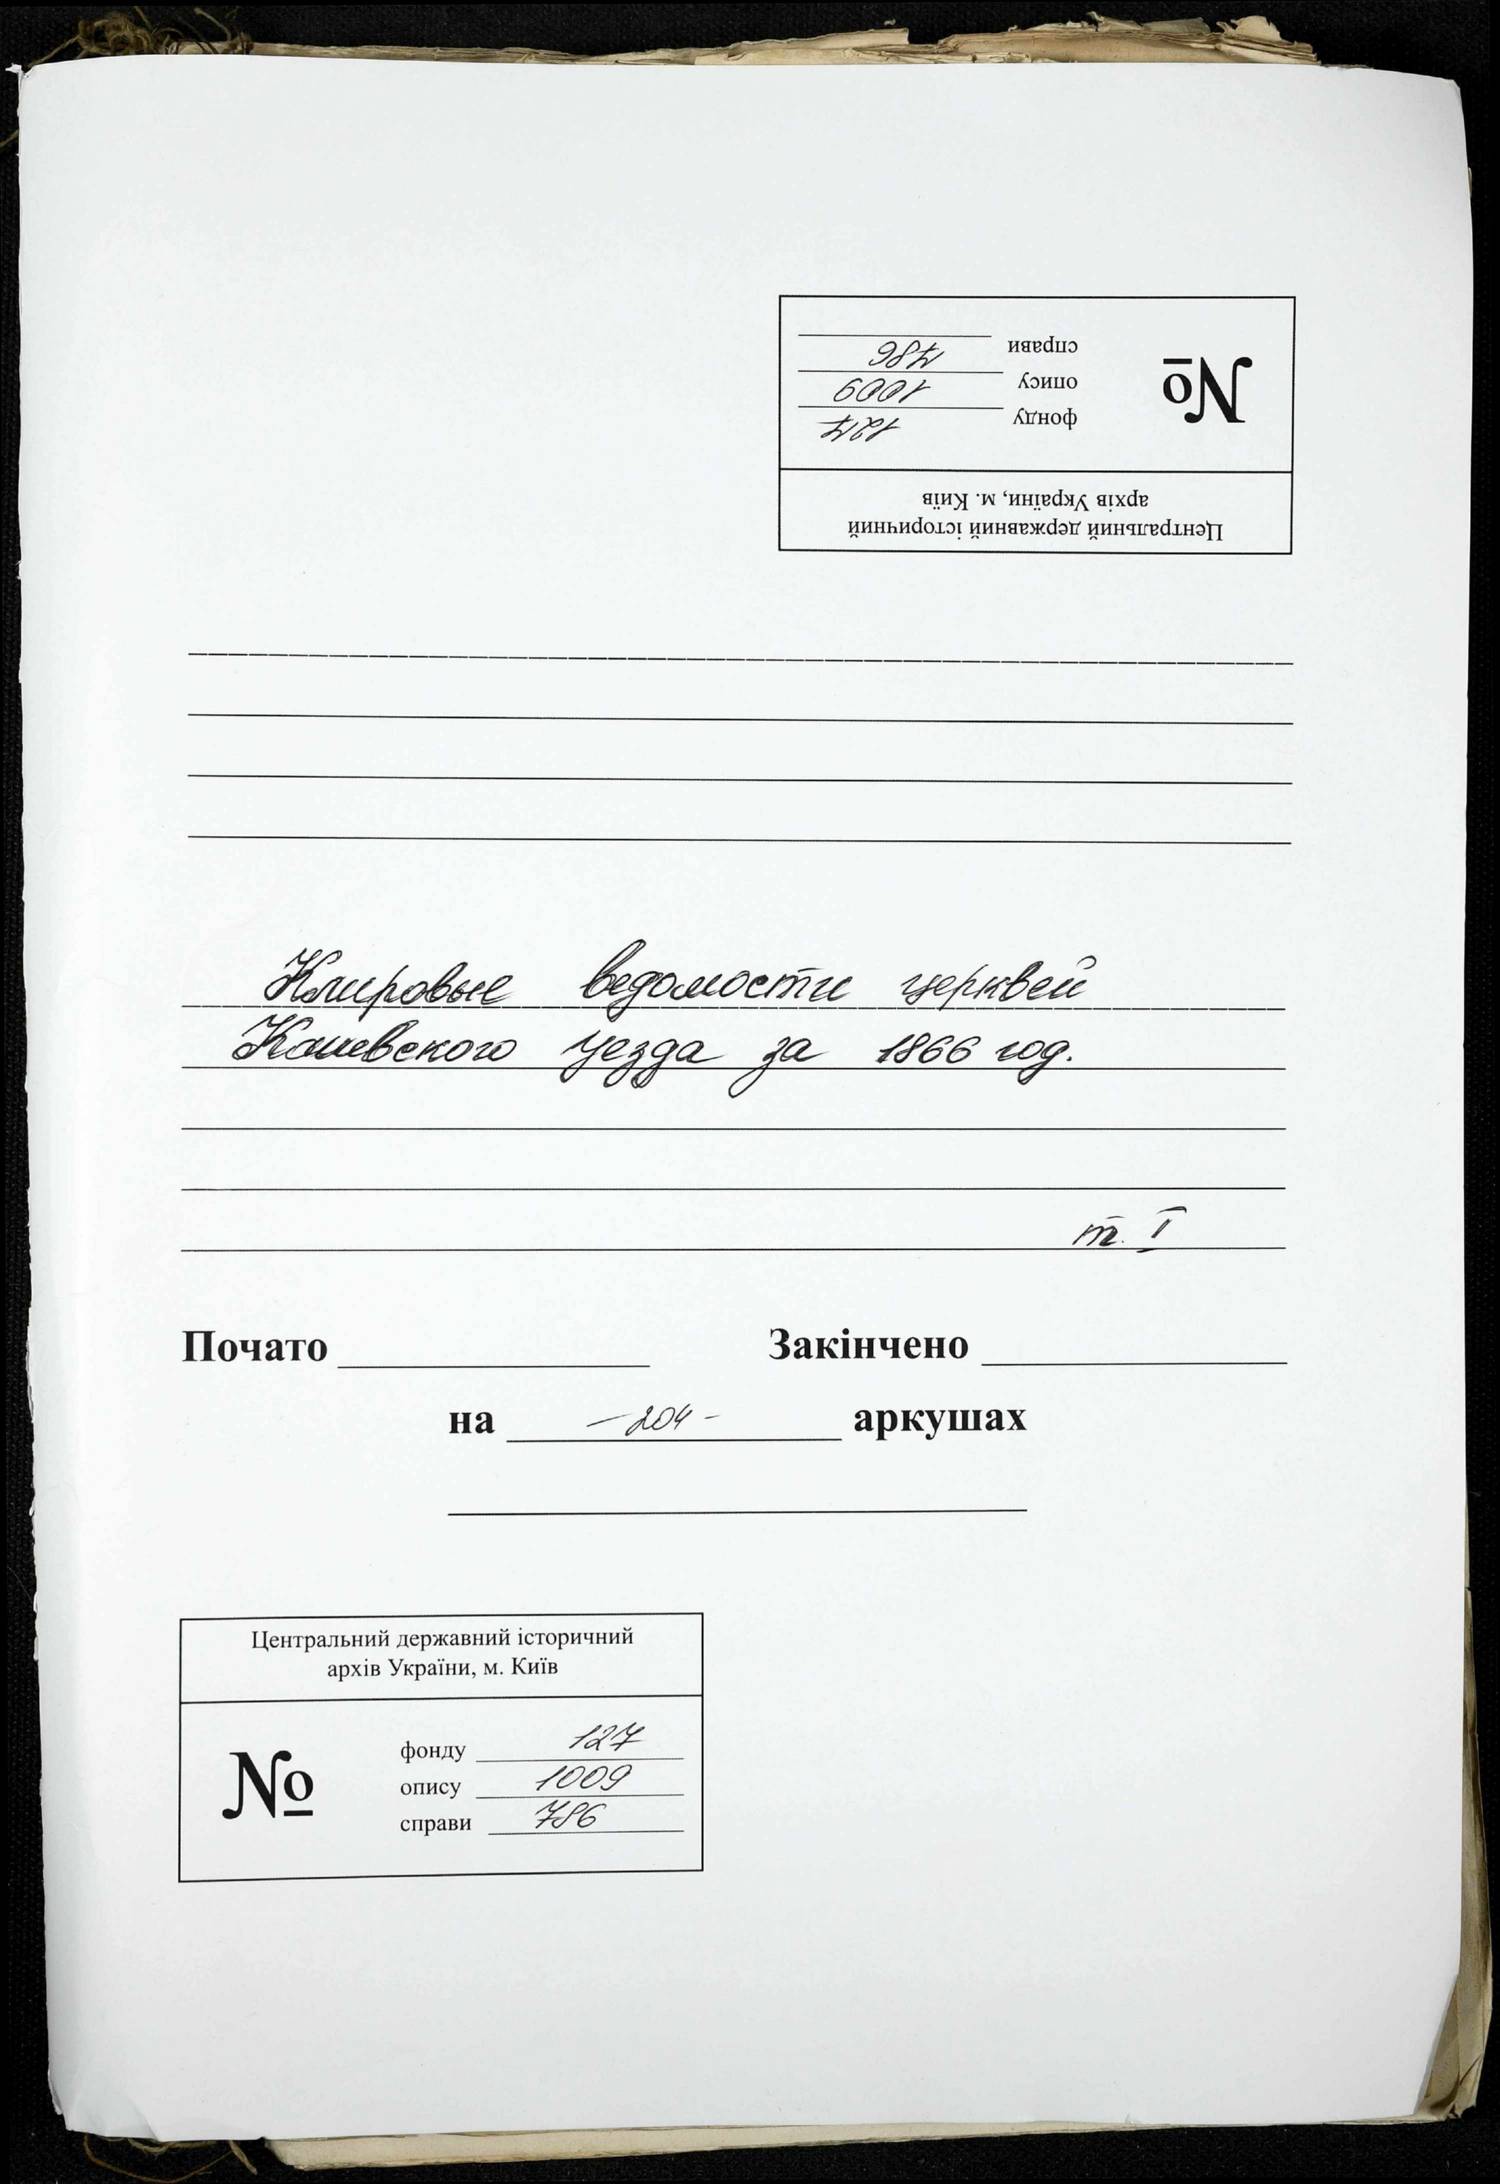 Центральний державний історичний
архів України, м. Київ
№
фонду 127
опису 1009
справи 786
Клировые ведомости церквей
Каневского уезда за 1866 год.
т. I
Почато Закінчено
на -204- аркушах
Центральний державний історичний
архів України, м. Київ
№
фонду 127
опису 1009
справи 786